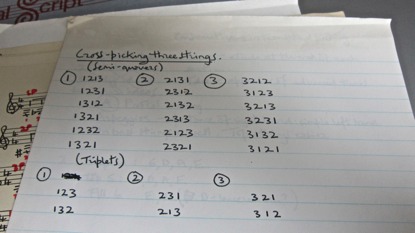 Script
Cross-picking three strings.
(Semi-quavers)
① 1213 ② 2131 ③ 3212
1231 2312 3123
1312 2132 3213
1321 2313 3231
1232 2123 3132
1321 2321 3121
(Triplets)
① ② ③
123 231 321
132 213 312